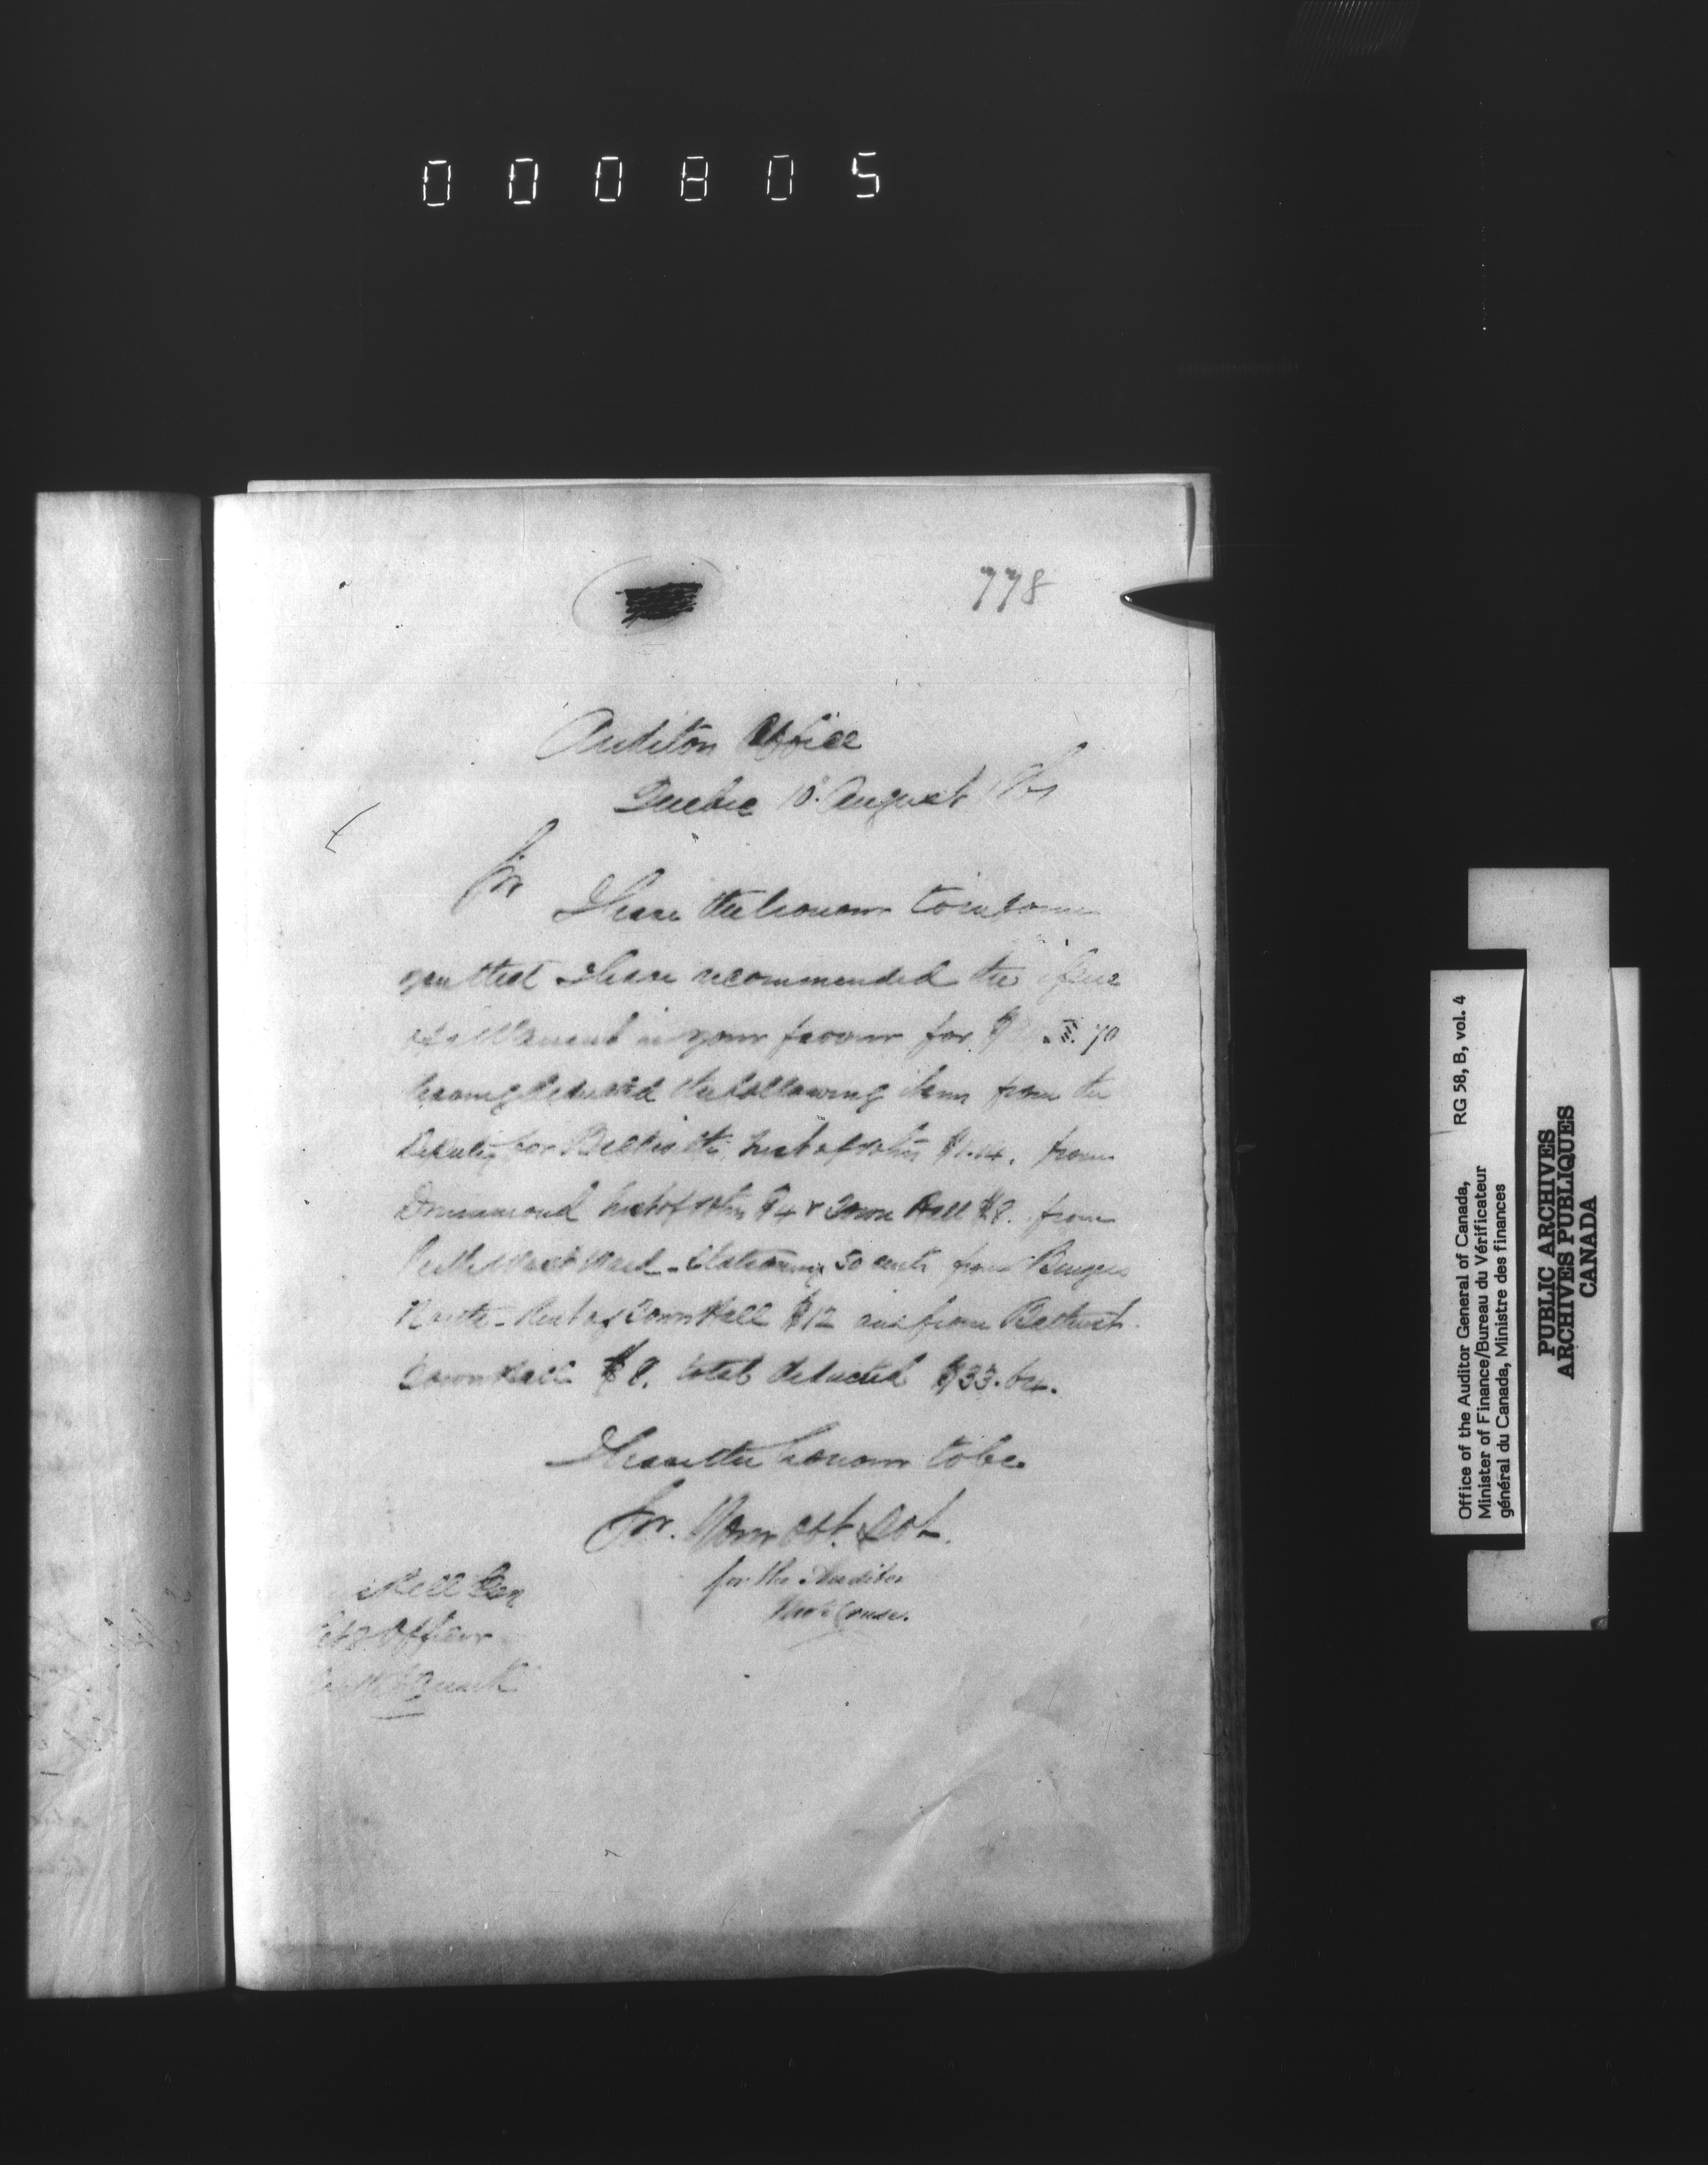 000805
778
Auditors Office
Quebec 10. August
Sir
I have the honour to inform
you that I have recommended the issue
of a Warrant in your favour for $ 70
having deducted the following items from the
Deputy for Beckwith, list of voters from
Drummond list of voters $4 & Town Hall $8. from
West Ward - Stationery 50 cents from
North - Rent of Town Hall $12 and from Bathurst
Town Hall $8. total deducted $33.64.
I have the honour to be
Sir. Your Obt. Sot.
for the Auditor
Officer
Office of the Auditor General of Canada,
Minister of Finance/Bureau du Vérificateur
général du Canada, Ministre des finances
RG 58, B, vol. 4
PUBLIC ARCHIVES
ARCHIVES PUBLIQUES
CANADA